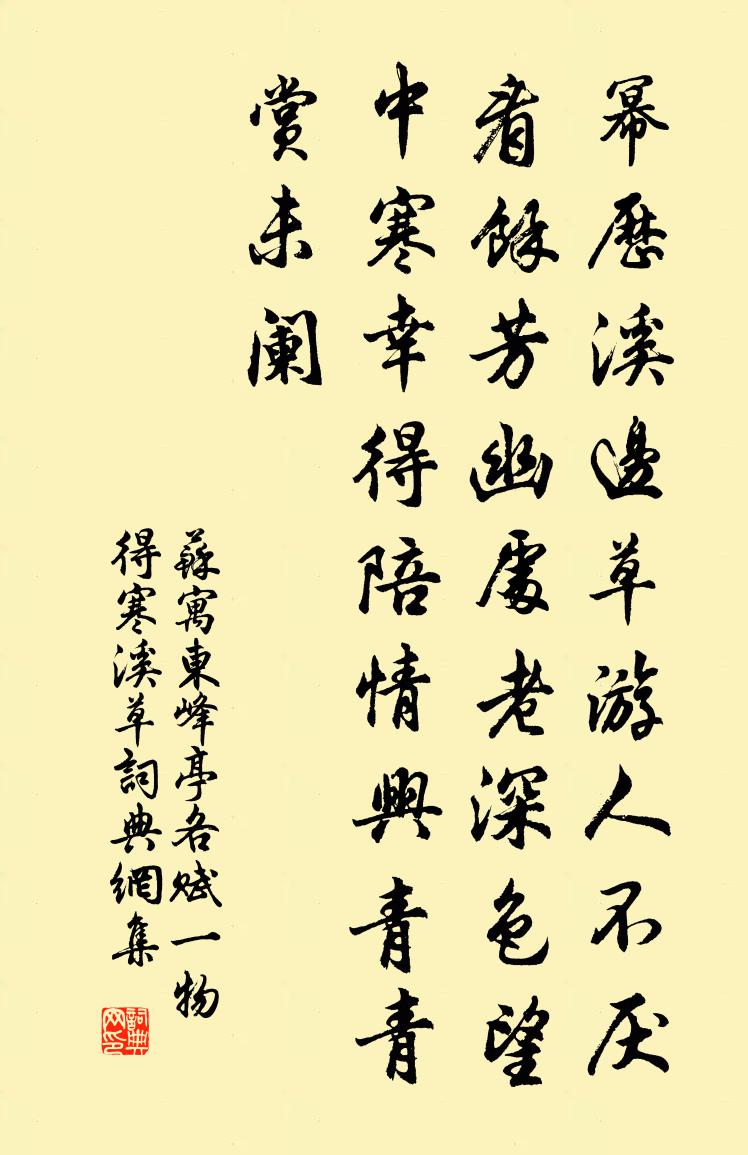 幂歷溪邊草游人不厌
看餘芳幽處老深色望
中寒幸得陪情興青青
賞未阑
蘇寓東峰亭各賦一物
得寒溪草詞典網集
詞典网印